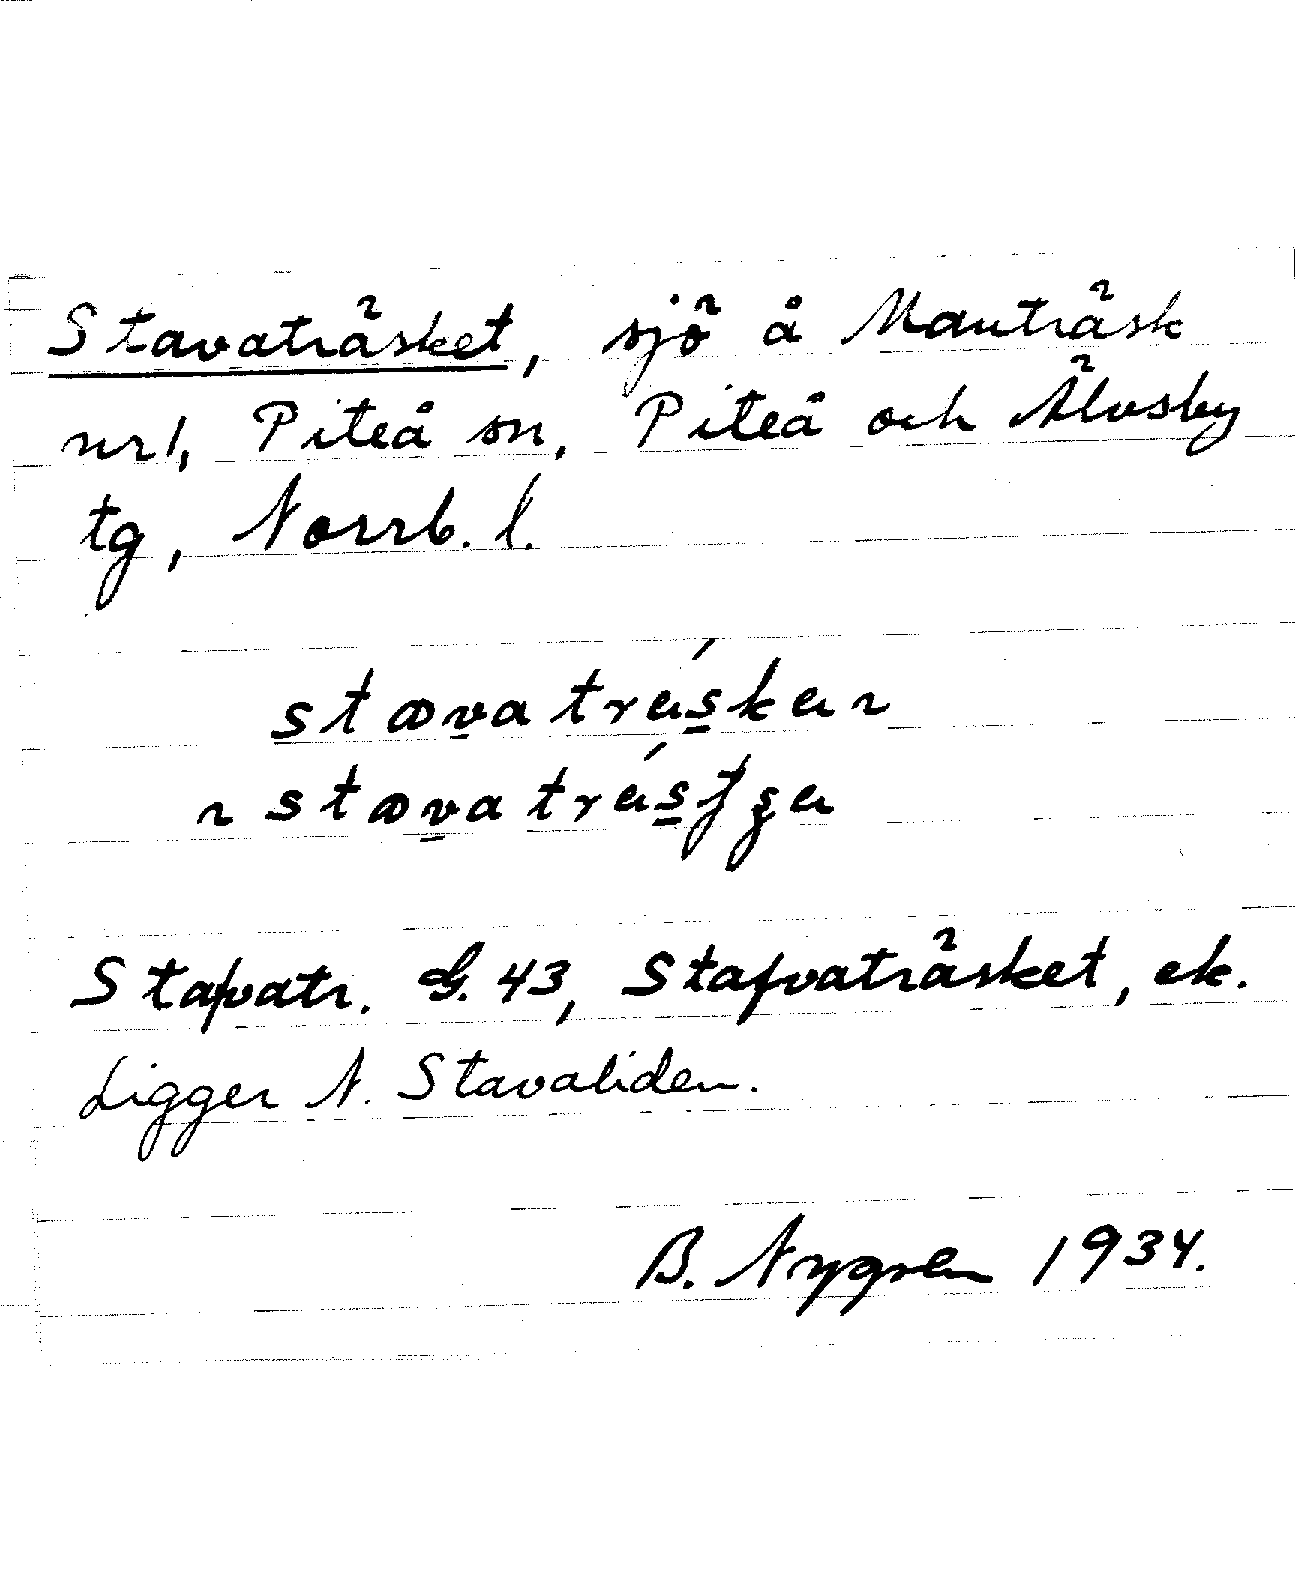 Stavaträsket, sjö å Manträsk
nr 1, Piteå sn, Piteå och Älvsby
tg, Norrb. l.
Stafvatr. G. 43, Stafvaträsket, ek.
Ligger N. Stavaliden.
B. Nygren 1934.